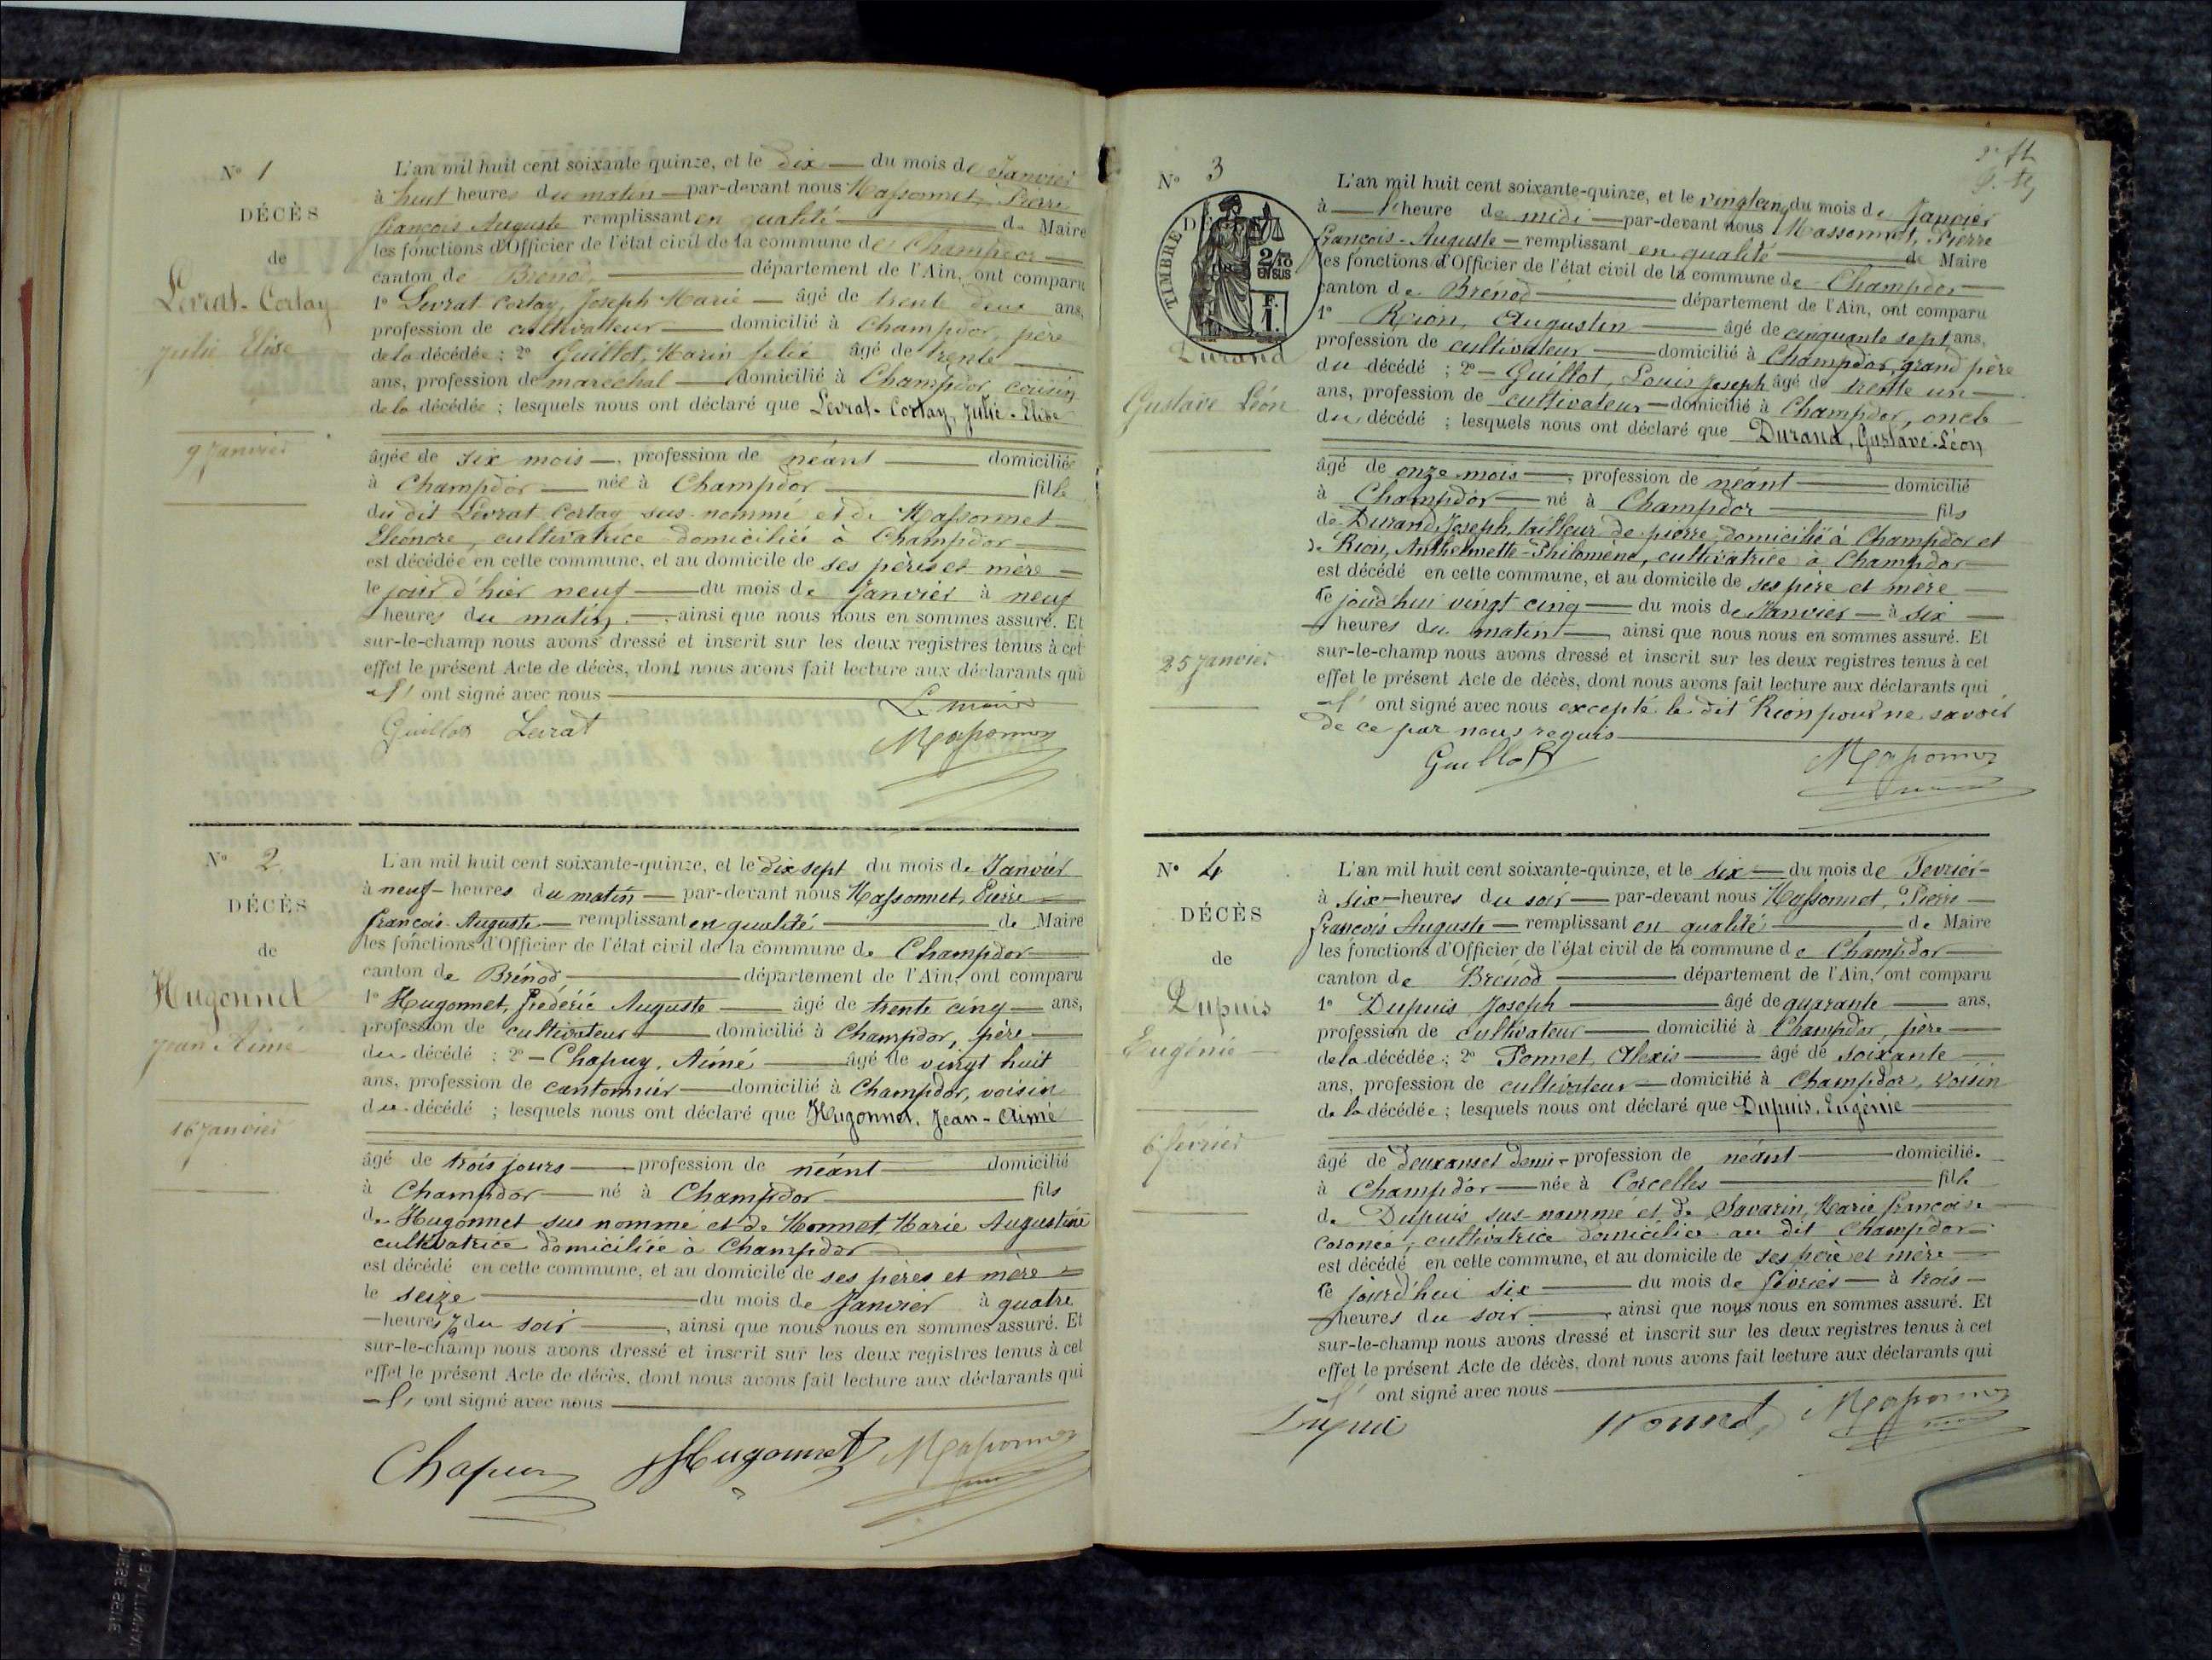 N° 1
DÉCÈS
de
Levrat-Cortay
Julie Elise
9 Janvier
L'an mil huit cent soixante-quinze, et le dix du mois de Janvier
à huit heures du matin par-devant nous Massonnet, Pierre
françois Auguste remplissant en qualité de Maire
les fonctions d'Officier de l'état civil de la commune de Champdor
canton de Brénod département de l'Ain, ont comparu
1° Levrat Cortay, Joseph Marie âgé de trente deux ans,
profession de cultivateur domicilié à Champdor, père
de la décédée ; 2° Guillot, Marin félix âgé de trente
ans, profession de marechal domicilié à Champdor cousin
de la décédée ; lesquels nous ont déclaré que Levrat-Cortay, Julie-Elise
âgée de six mois, profession de néant domiciliée
à Champdor née à Champdor fille
du dit Levrat Cortay sus-nommé et de Massonnet
Eléonore, cultivatrice domiciliée à Champdor
est décédée en cette commune, et au domicile de ses pères et mère
le jour d'hier neuf du mois de Janvier à neuf
heures du matin, ainsi que nous nous en sommes assuré. Et
sur-le-champ nous avons dressé et inscrit sur les deux registres tenus à cet
effet le présent Acte de décès, dont nous avons fait lecture aux déclarants qui
ont signé avec nous
Le maire
Guillot Levrat Massonnet
N° 2
DÉCÈS
de
Hugonnet
Jean Aimé
16 Janvier
L'an mil huit cent soixante-quinze, et le dix sept du mois de Janvier
à neuf heures du matin par-devant nous Massonnet, Pierre
françois-Auguste remplissant en qualité de Maire
les fonctions d'Officier de l'état civil de la commune de Champdor
canton de Brénod département de l'Ain, ont comparu
1° Hugonnet, frédéric Auguste âgé de trente cinq ans,
profession de cultivateur domicilié à Champdor, père
du décédé ; 2° Chapuy, Aimé âgé de vingt huit
ans, profession de cantonnier domicilié à Champdor, voisin
du décédé ; lesquels nous ont déclaré que Hugonnet, Jean-Aimé
âgé de trois jours profession de néant domicilié
à Champdor né à Champdor fils
de Hugonnet sus nommé et de Monnet, Marie Augustine
cultivatrice domiciliée à Champdor
est décédé en cette commune, et au domicile de ses pères et mère
le seize du mois de Janvier à quatre
heures 1/2 du soir, ainsi que nous nous en sommes assuré. Et
sur-le-champ nous avons dressé et inscrit sur les deux registres tenus à cet
effet le présent Acte de décès, dont nous avons fait lecture aux déclarants qui
ont signé avec nous
Chapuy Hugonnet Massonnet
N° 3
TIMBRE DE
2/10
EN SUS
F.
1.
Durand
Gustave Léon
25 Janvier
L'an mil huit cent soixante-quinze, et le vingt cinq du mois de Janvier
à heure de midi par-devant nous Massonnet, Pierre
françois-Auguste remplissant en qualité de Maire
les fonctions d'Officier de l'état civil de la commune de Champdor
canton de Brénod département de l'Ain, ont comparu
1° Rion, Augustin âgé de cinquante sept ans,
profession de cultivateur domicilié à Champdor, grand père
du décédé ; 2° Guillot, Louis Joseph âgé de trente un
ans, profession de cultivateur domicilié à Champdor, oncle
du décédé ; lesquels nous ont déclaré que Durand, Gustave-Léon
âgé de onze mois, profession de néant domicilié
à Champdor né à Champdor fils
de Durand, Joseph, tailleur de pierre, domicilié à Champdor et
de Rion, Anthelmette-Philomène, cultivatrice à Champdor
est décédé en cette commune, et au domicile de ses père et mère
ce jourd'hui vingt cinq du mois de Janvier à six
heures du matin, ainsi que nous nous en sommes assuré. Et
sur-le-champ nous avons dressé et inscrit sur les deux registres tenus à cet
effet le présent Acte de décès, dont nous avons fait lecture aux déclarants qui
ont signé avec nous excepté le dit Rion pour ne savoir
de ce par nous requis
Guillot Massonnet
N° 4
DÉCÈS
de
Dupuis
Eugénie
6 février
L'an mil huit cent soixante-quinze, et le six du mois de Fevrier
à six heures du soir par-devant nous Massonnet, Pierre
françois Auguste remplissant en qualité de Maire
les fonctions d'Officier de l'état civil de la commune de Champdor
canton de Brénod département de l'Ain, ont comparu
1° Dupuis Joseph âgé de quarante ans,
profession de cultivateur domicilié à Champdor, père
de la décédée ; 2° Ponnet, Alexis âgé de soixante
ans, profession de cultivateur domicilié à Champdor, voisin
de la décédée ; lesquels nous ont déclaré que Dupuis, Eugénie
âgé de deux ans et demi profession de néant domicilié
à Champdor née à Corcelles fille
de Dupuis sus-nommé et de Savarin, Marie françoise
cultivatrice domiciliée au dit Champdor
est décédé en cette commune, et au domicile de ses père et mère
ce jourd'hui six du mois de février à trois
heures du soir, ainsi que nous nous en sommes assuré. Et
sur-le-champ nous avons dressé et inscrit sur les deux registres tenus à cet
effet le présent Acte de décès, dont nous avons fait lecture aux déclarants qui
ont signé avec nous
Dupuis Massonnet